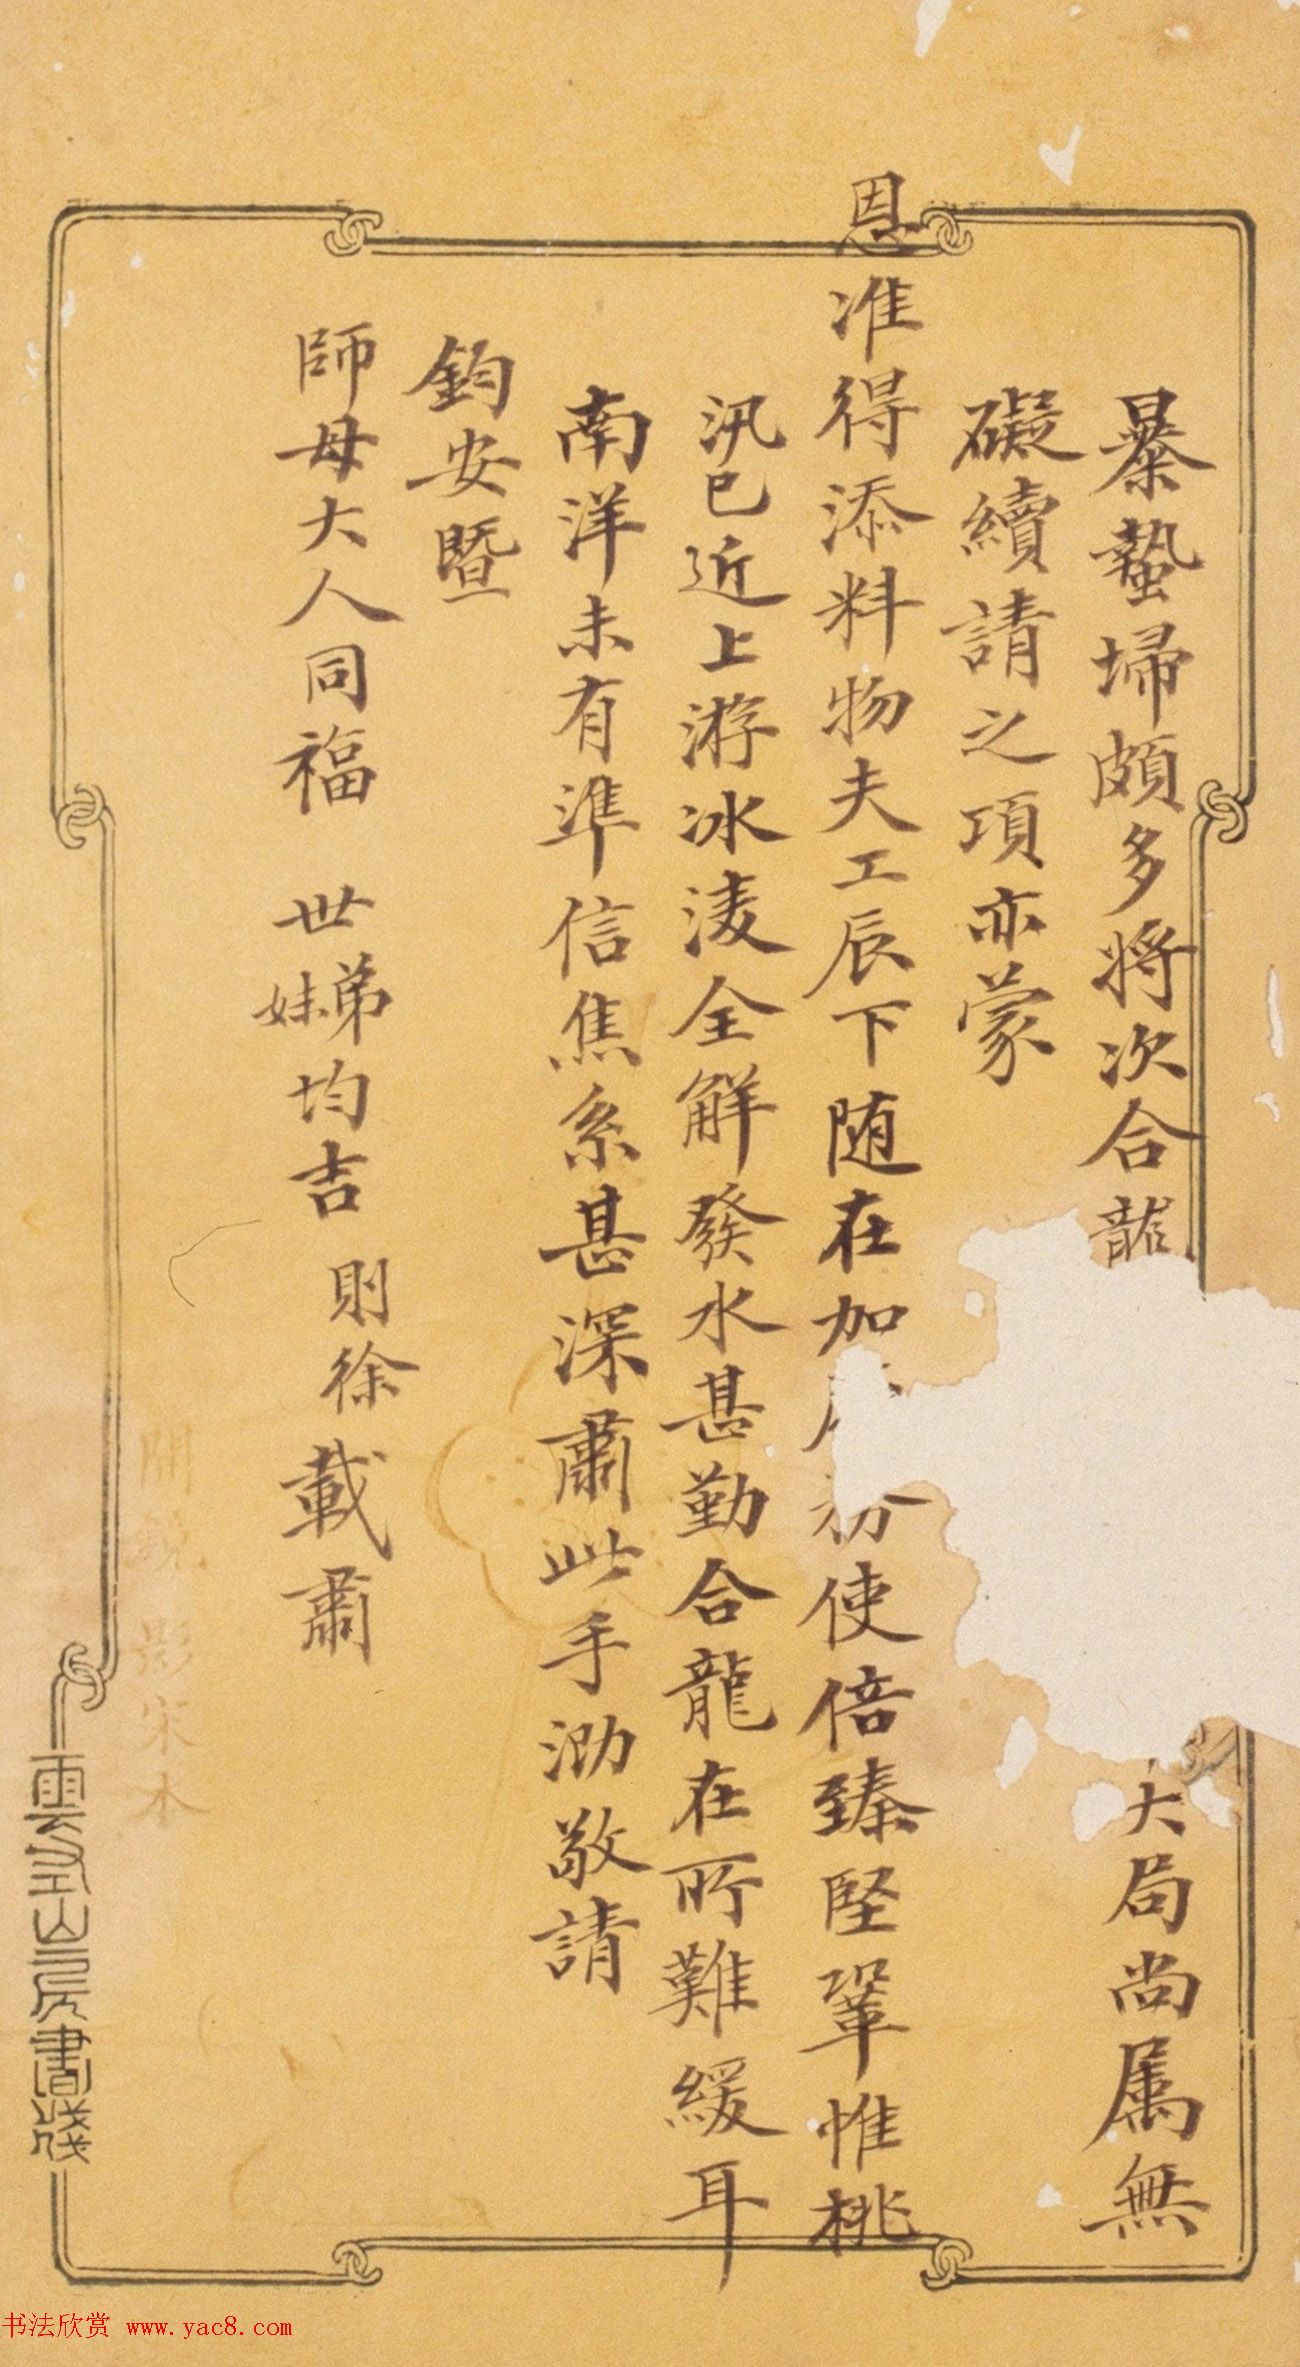 暴蟄埽頗多將次合龍
大局尚屬無
礙續請之項亦蒙
恩准得添料物夫工辰下随在加
使倍臻堅鞏惟桃
汛已近上游冰淩全解發水甚勤合龍在所難緩耳
南洋未有準信焦系甚深肅此手泐敬請
鈞安暨
師母大人同福 世弟妹均吉 則徐載肅
雲左山房書牋
影宋本
书法欣赏 www.yac8.com